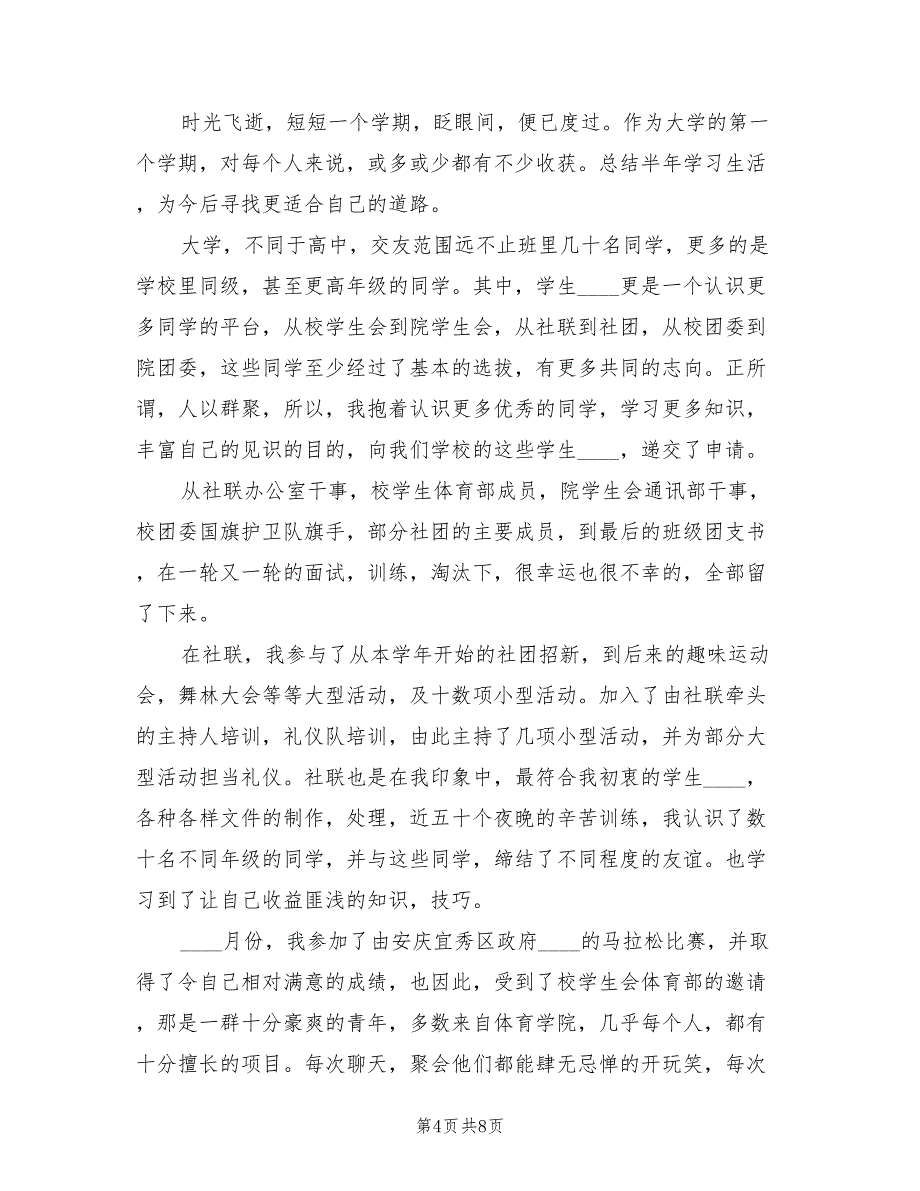 时光飞逝，短短一个学期，眨眼间，便已度过。作为大学的第一
个学期，对每个人来说，或多或少都有不少收获。总结半年学习生活
，为今后寻找更适合自己的道路。
大学，不同于高中，交友范围远不止班里几十名同学，更多的是
学校里同级，甚至更高年级的同学。其中，学生____更是一个认识更
多同学的平台，从校学生会到院学生会，从社联到社团，从校团委到
院团委，这些同学至少经过了基本的选拔，有更多共同的志向。正所
谓，人以群聚，所以，我抱着认识更多优秀的同学，学习更多知识，
丰富自己的见识的目的，向我们学校的这些学生____，递交了申请。
从社联办公室干事，校学生体育部成员，院学生会通讯部干事，
校团委国旗护卫队旗手，部分社团的主要成员，到最后的班级团支书
，在一轮又一轮的面试，训练，淘汰下，很幸运也很不幸的，全部留
了下来。
在社联，我参与了从本学年开始的社团招新，到后来的趣味运动
会，舞林大会等等大型活动，及十数项小型活动。加入了由社联牵头
的主持人培训，礼仪队培训，由此主持了几项小型活动，并为部分大
型活动担当礼仪。社联也是在我印象中，最符合我初衷的学生____，
各种各样文件的制作，处理，近五十个夜晚的辛苦训练，我认识了数
十名不同年级的同学，并与这些同学，缔结了不同程度的友谊。也学
习到了让自己收益匪浅的知识，技巧。
____月份，我参加了由安庆宜秀区政府____的马拉松比赛，并取
得了令自己相对满意的成绩，也因此，受到了校学生会体育部的邀请
，那是一群十分豪爽的青年，多数来自体育学院，几乎每个人，都有
十分擅长的项目。每次聊天，聚会他们都能肆无忌惮的开玩笑，每次
第4页 共8页